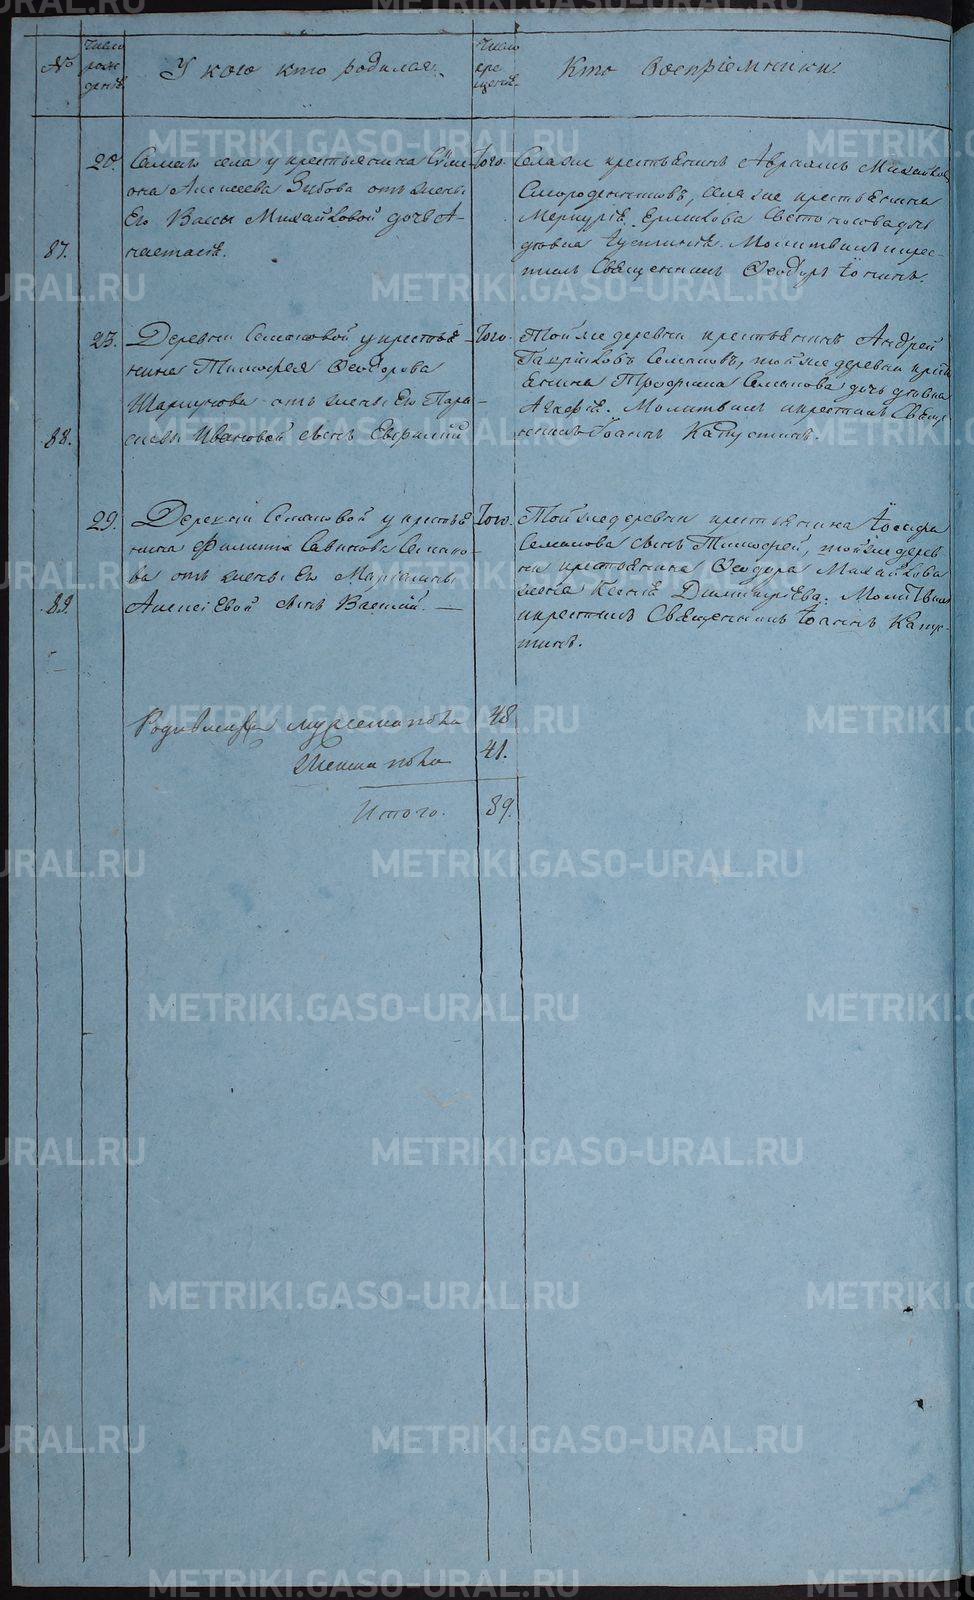 №
Число рождения
У кого кто родился.
Число крещения.
Кто воспріемники.
87.
20.
Самаго села у крестьянина Симе-
она Алексеева Зыбова отъ жены
Его Вассы Михайловой дочь А-
настасія.
Того.
Села же крестьянинъ Авраамъ Михайловъ
села же крестьянина
Меркурія Ермилова дочь
девка Устинія. Молитвилъ и крес-
тилъ Священникъ Феодоръ Іонинъ.
88.
23.
Деревни Семановой у крестья-
нина Тимофея Феодорова
отъ жены Его Пара-
скевы Ивановой сынъ Евфимій
Того.
Той же деревни крестьянинъ Андрей
Гавриловъ Семановъ, той же деревни крестья
янина Трофима Семанова дочь девка
Агафія. Молитвилъ и крестилъ Свящ
енникъ Іоаннъ Капустинъ.
89.
29.
Деревни Семановой у крестья
нина Филиппа Савинова Семано-
ва отъ жены Его Марьаны
Алексіевой сынъ Василій. —
Того.
Той же деревни крестьянина Іосифа
Семанова сынъ Тимофей, той же дерев
ни крестьянина Феодора Михайлова
жена Ксенія Димитріева. Молитвилъ
и крестилъ Священникъ Іоаннъ Капус-
тинъ.
Родившихся мужеска пола 48
Женска пола 41.
Итого. 89.
METRIKI.GASO-URAL.RU